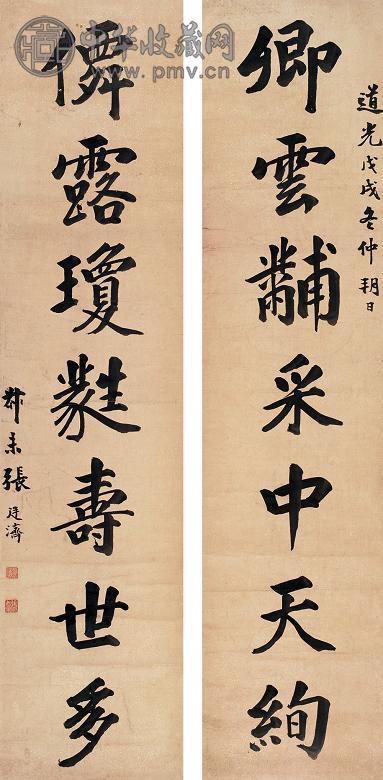 中华收藏网
www.pmv.cn
道光戊戌冬仲朔日
卿雲黼采中天絢
僊露瓊蕤壽世多
叔未張廷濟